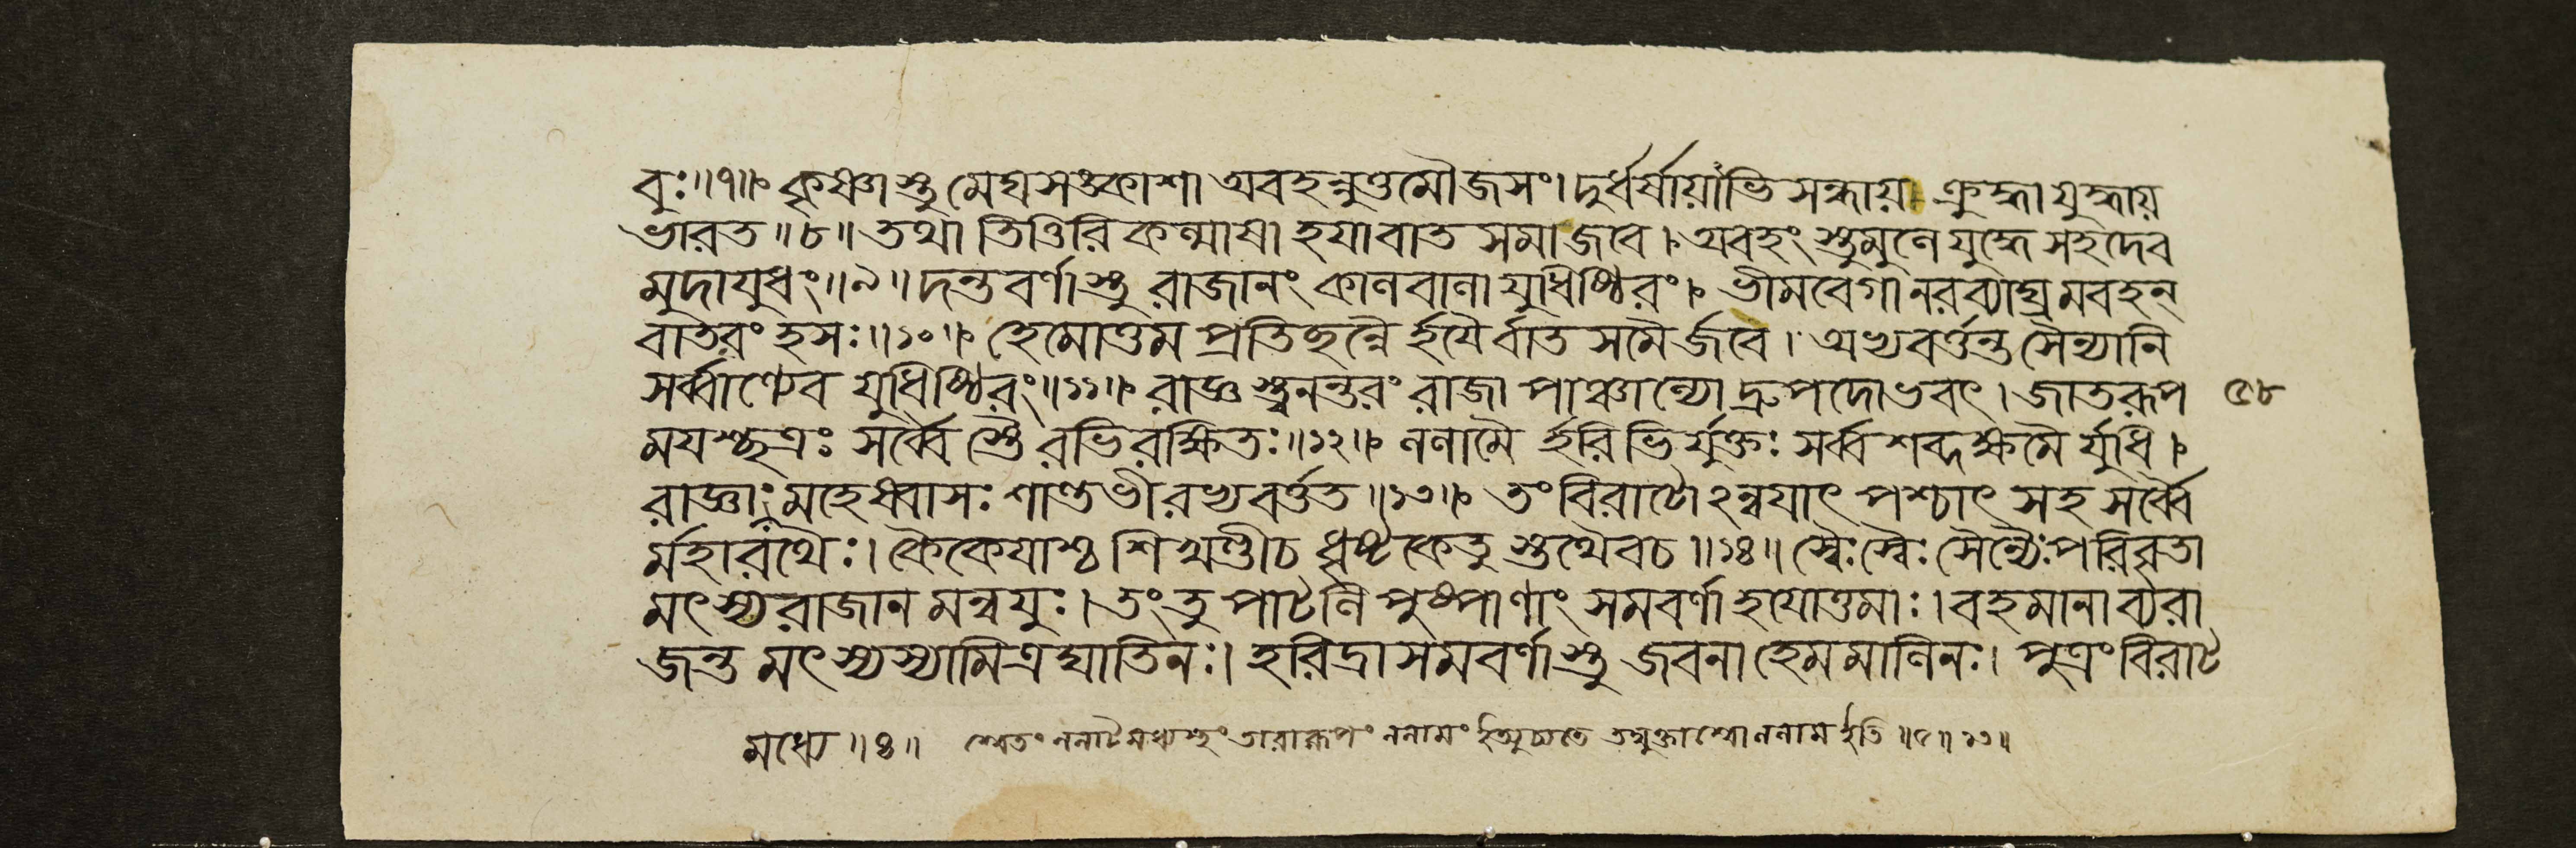 বুঃ॥৭॥ কৃষ্ণাস্তু মেঘসঙ্কাশা অবহন্নুত্তমৌজসং। দুর্ধর্ষায়াভিসন্ধায় ক্রুদ্ধা যুদ্ধায়
ভারত॥৮॥ তথা তিত্তিরি কল্মাষা হযা বাত সমা জবে। অবহং স্তুমুণে যুদ্ধে সহদেব
মুদাযুধং॥৯॥ দন্তবর্ণাস্তু রাজানং কালবালা যুধিষ্ঠিরং। ভীমবেগা নরব্যাঘ্রমবহন্
বাতরংহসঃ॥১০॥ হেমোত্তম প্রতিছন্নৈ র্হযৈর্বাত সমৈর্জবে। অভ্যবর্ত্তন্ত সৈন্যানি
সর্ব্বাণ্যেব যুধিষ্ঠিরং॥১১॥ রাজ্ঞস্ত্বনন্তরং রাজা পাঞ্চাল্যো দ্রুপদোভবৎ। জাতরূপ ৫৮
মযশ্ছত্রঃ সর্ব্বৈ স্তৈরভিরক্ষিতঃ॥১২॥ ললামৈ র্হরিভি র্যুক্তঃ সর্ব্বশব্দক্ষমৈ র্যুধি।
রাজ্ঞাং মহেষ্বাসঃ শান্তভীরভ্যবর্ত্তত॥১৩॥ তং বিরাটোঽন্বযাৎ পশ্চাৎ সহ সর্ব্বৈ
র্মহারথৈঃ। কৈকেযাশ্চ শিখণ্ডীচ ধৃষ্টকেতু স্তথৈবচ॥১৪॥ স্বৈঃ স্বৈঃ সৈন্যৈঃ পরিবৃতা
মৎস্যরাজানমন্বযুঃ। তং তু পাটলি পুষ্পাণাং সমবর্ণা হযোত্তমাঃ। বহমানা ব্যরা
জন্ত মৎস্যস্যামিত্রঘাতিনঃ। হরিদ্রাসমবর্ণাস্তু জবনা হেমমালিনঃ। পুত্রং বিরাট
মধ্যে॥৪॥ শ্বেতং ললাটমধ্যস্থং তারারূপং ললামং ইত্যুচ্যতে তদ্যুক্তাশ্বো ললাম ইতি॥৫॥১৩॥